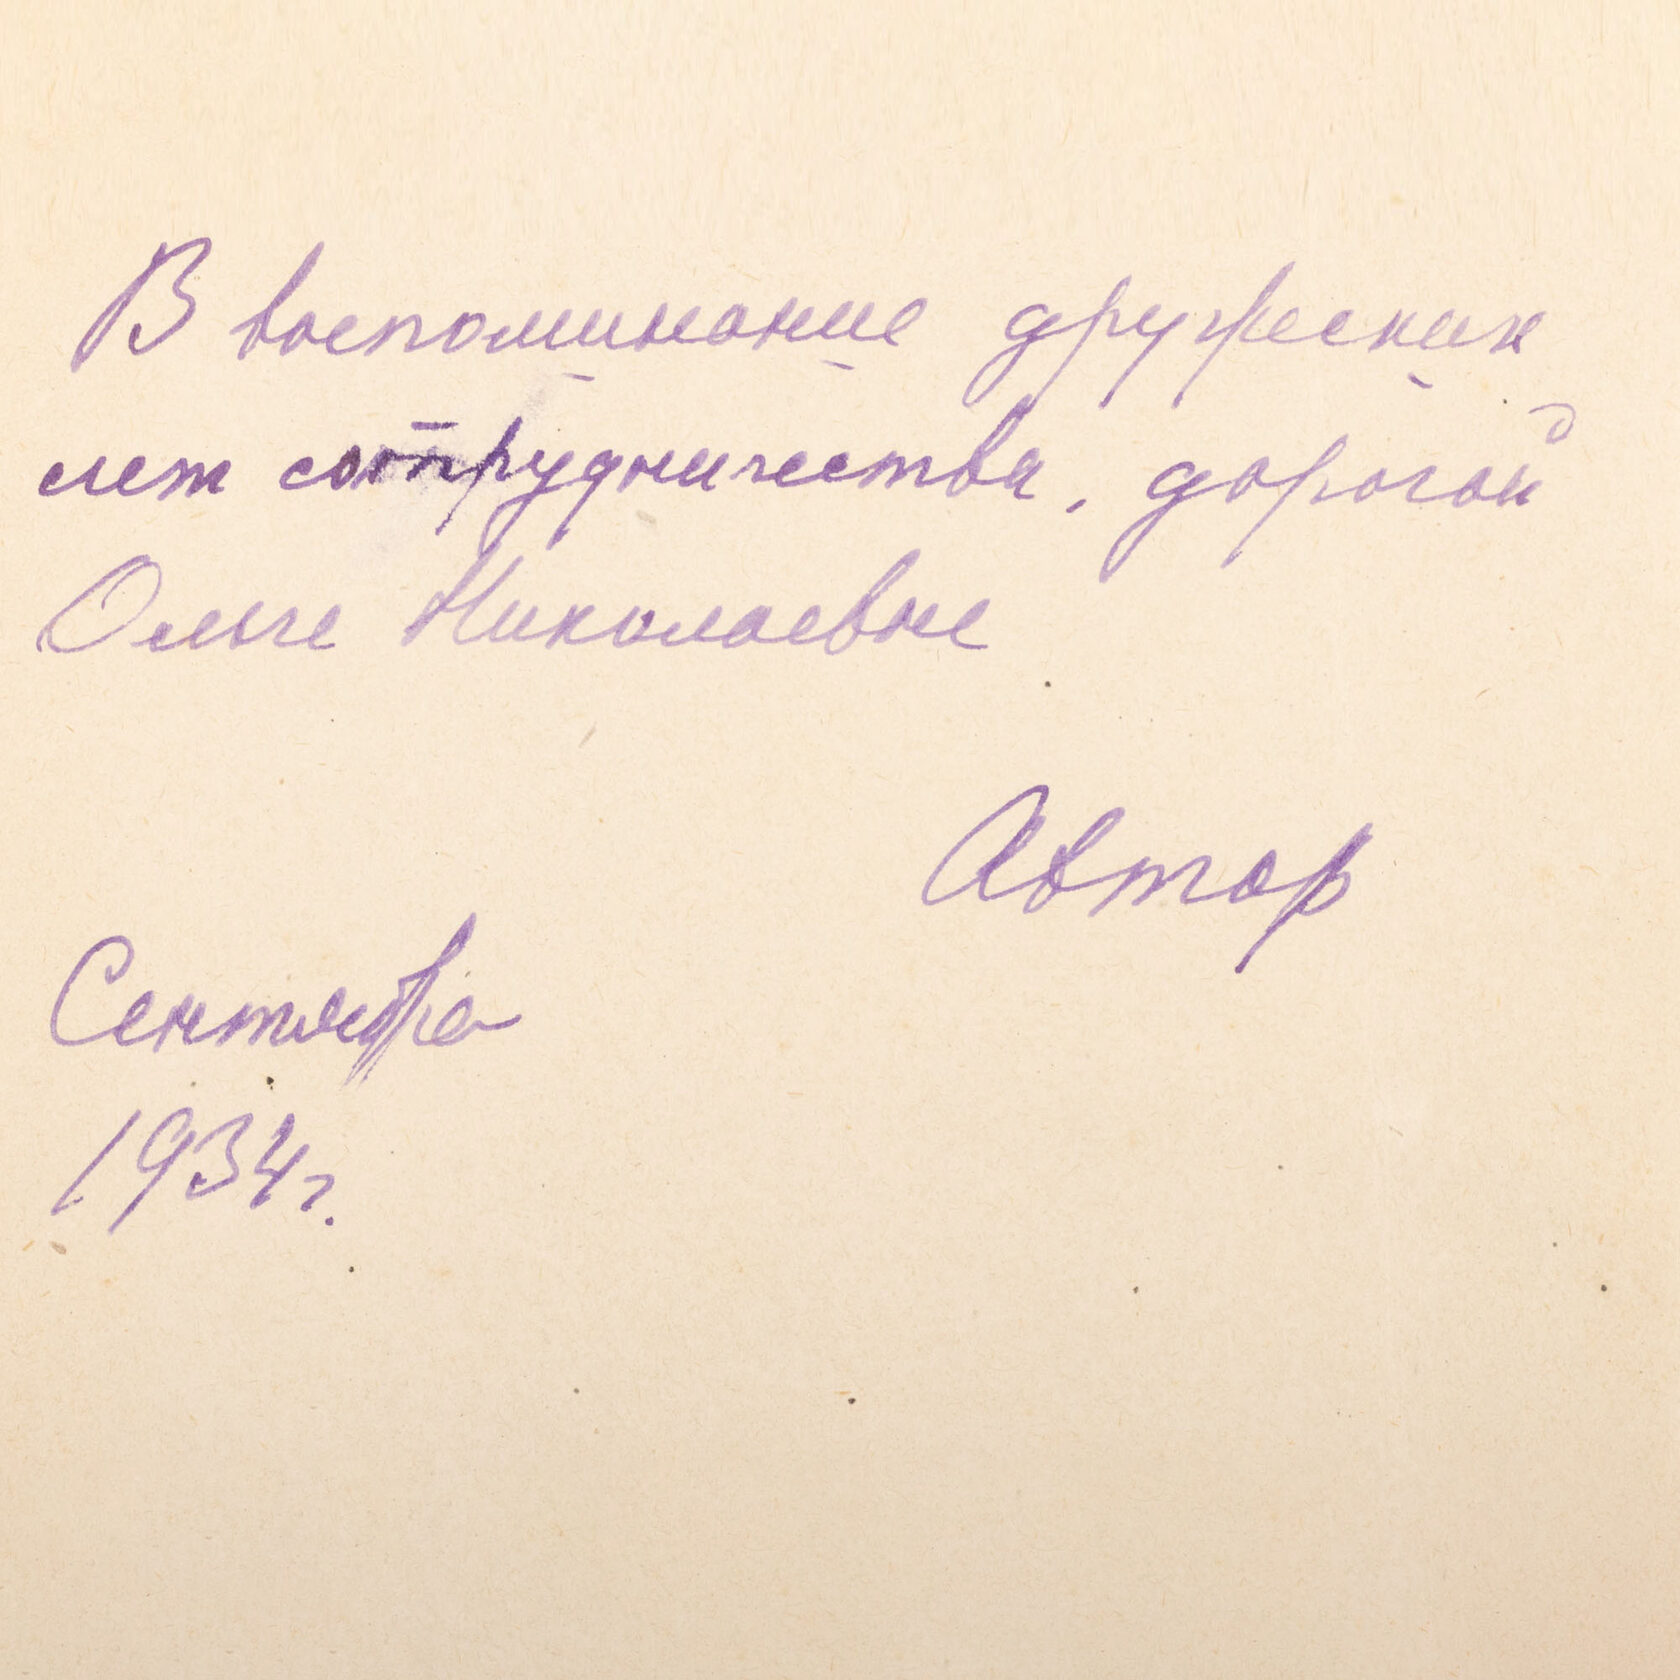 В воспоминание дружеских
лет сотрудничества, дорогой
Ольге Николаевне
Автор
Сентября
1934 г.